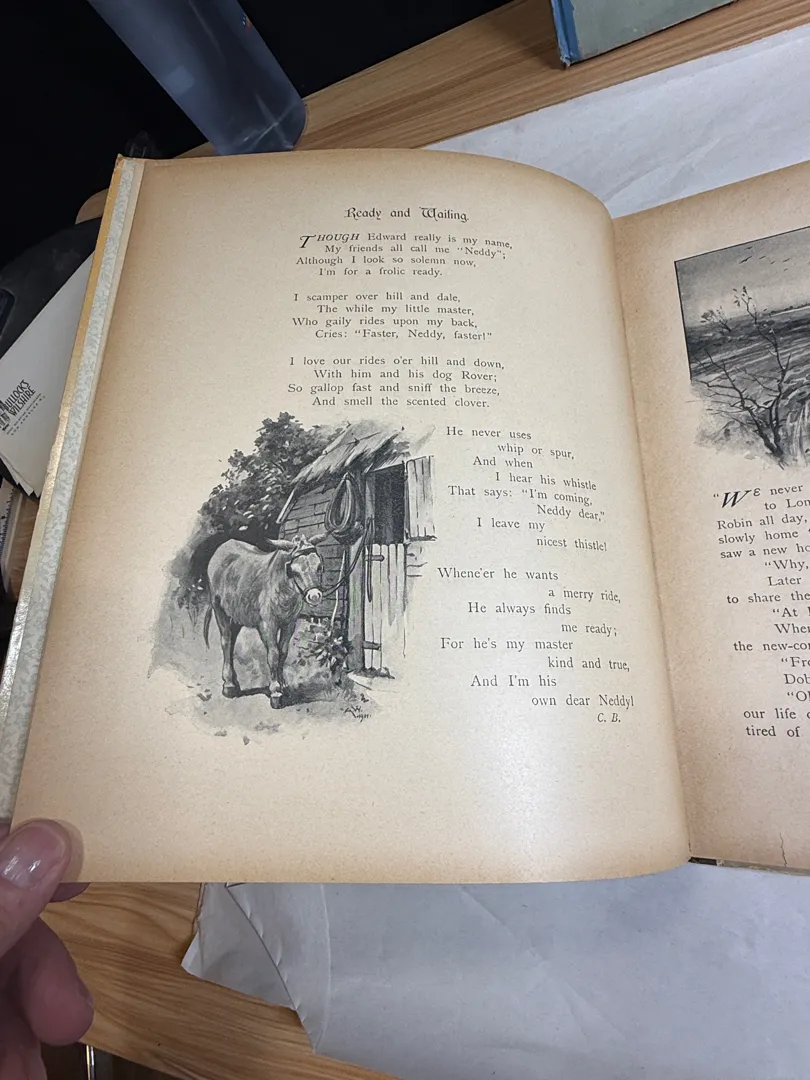 Ready and Waiting.
THOUGH Edward really is my name,
My friends all call me "Neddy";
Although I look so solemn now,
I'm for a frolic ready.
I scamper over hill and dale,
The while my little master,
Who gaily rides upon my back,
Cries: "Faster, Neddy, faster!"
I love our rides o'er hill and down,
With him and his dog Rover;
So gallop fast and sniff the breeze,
And smell the scented clover.
He never uses
whip or spur,
And when
I hear his whistle
That says: "I'm coming,
Neddy dear,"
I leave my
nicest thistle!
Whene'er he wants
a merry ride,
He always finds
me ready;
For he's my master
kind and true,
And I'm his
own dear Neddy!
C. B.
"WE never
to Lon
Robin all day,
slowly home
saw a new ho
"Why,
Later
to share the
"At
When
the new-con
"Fro
Dob
"Ol
our life
tired of
BULLOCK'S
WILSHIRE